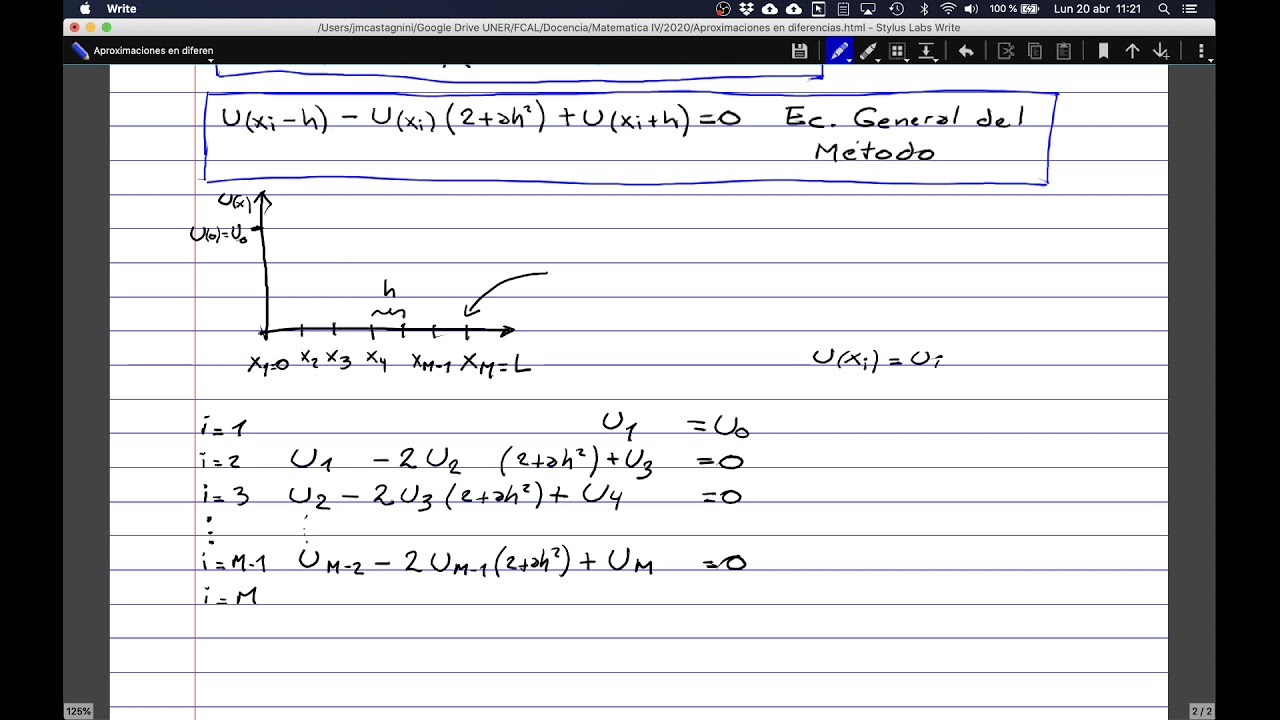 Write
100 %
Lun 20 abr 11:21
/Users/jmcastagnini/Google Drive UNER/FCAL/Docencia/Matematica IV/2020/Aproximaciones en diferencias.html - Stylus Labs Write
Aproximaciones en diferen
U(xi-h) - U(xi) (2+ah²) + U(xi+h) = 0 Ec. General del
Método
U(x)
U(0)=U0
h
x1=0 x2 x3 x4 xM-1 xM=L
U(xi) = Ui
i=1 U1 = U0
i=2 U1 - 2U2 (2+ah²) + U3 = 0
i=3 U2 - 2U3 (2+ah²) + U4 = 0
i=M-1 UM-2 - 2UM-1 (2+ah²) + UM = 0
i=M
125%
2 / 2